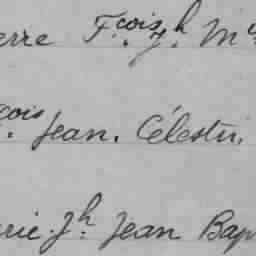 erre F.çois J.h M
çois. Jean. Célestin.
rie. J.h Jean Bap